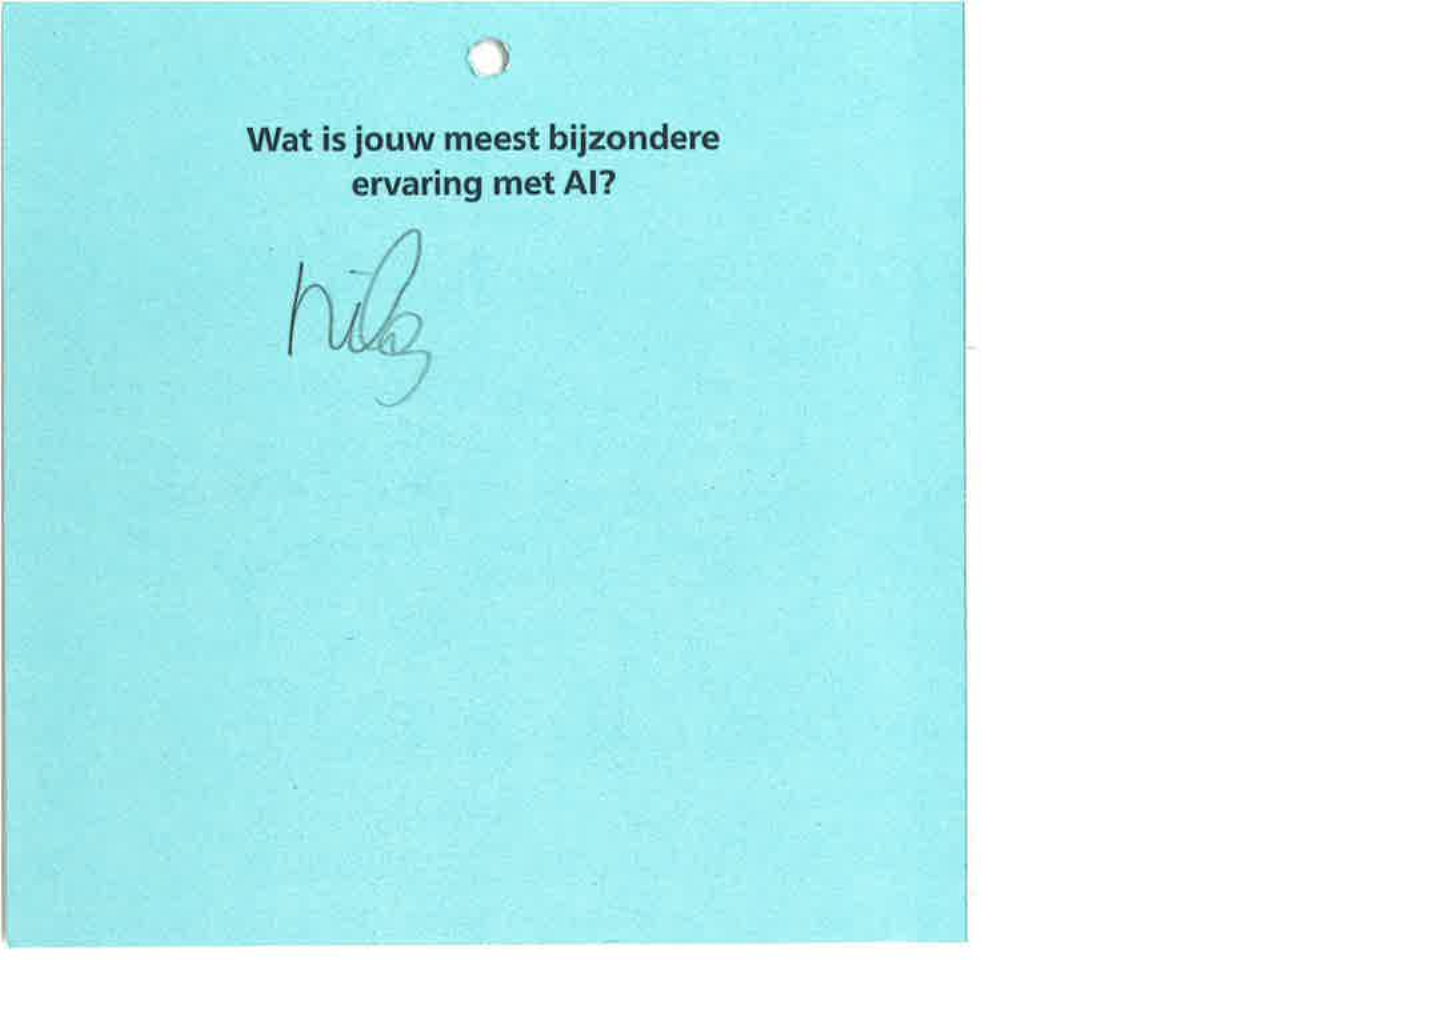 Wat is jouw meest bijzondere
ervaring met AI?